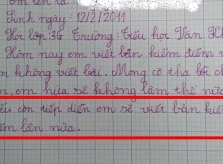 Em tên là
Sinh ngày: 12/2/2011
Học lớp: 3G Trường: Tiểu học Văn
Hôm nay em viết bản kiểm điểm
không viết bài. Mong cô tha lỗi
em hứa sẽ không làm thế nữa
còn tiếp diễn em sẽ viết bản kiểm
lần nữa.